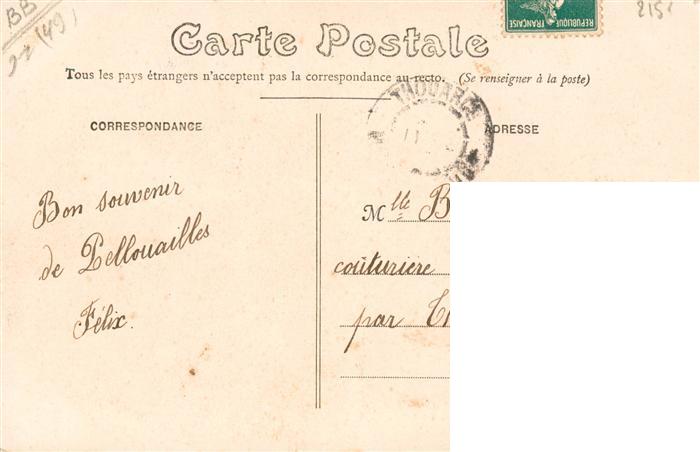 BB
(49)
2151
RÉPUBLIQUE FRANÇAISE
Carte Postale
Tous les pays étrangers n'acceptent pas la correspondance au recto. (Se renseigner à la poste)
CORRESPONDANCE
ADRESSE
THOUARCÉ
11
Bon souvenir
de Pellouailles
Félix.
Mlle B
couturière
par